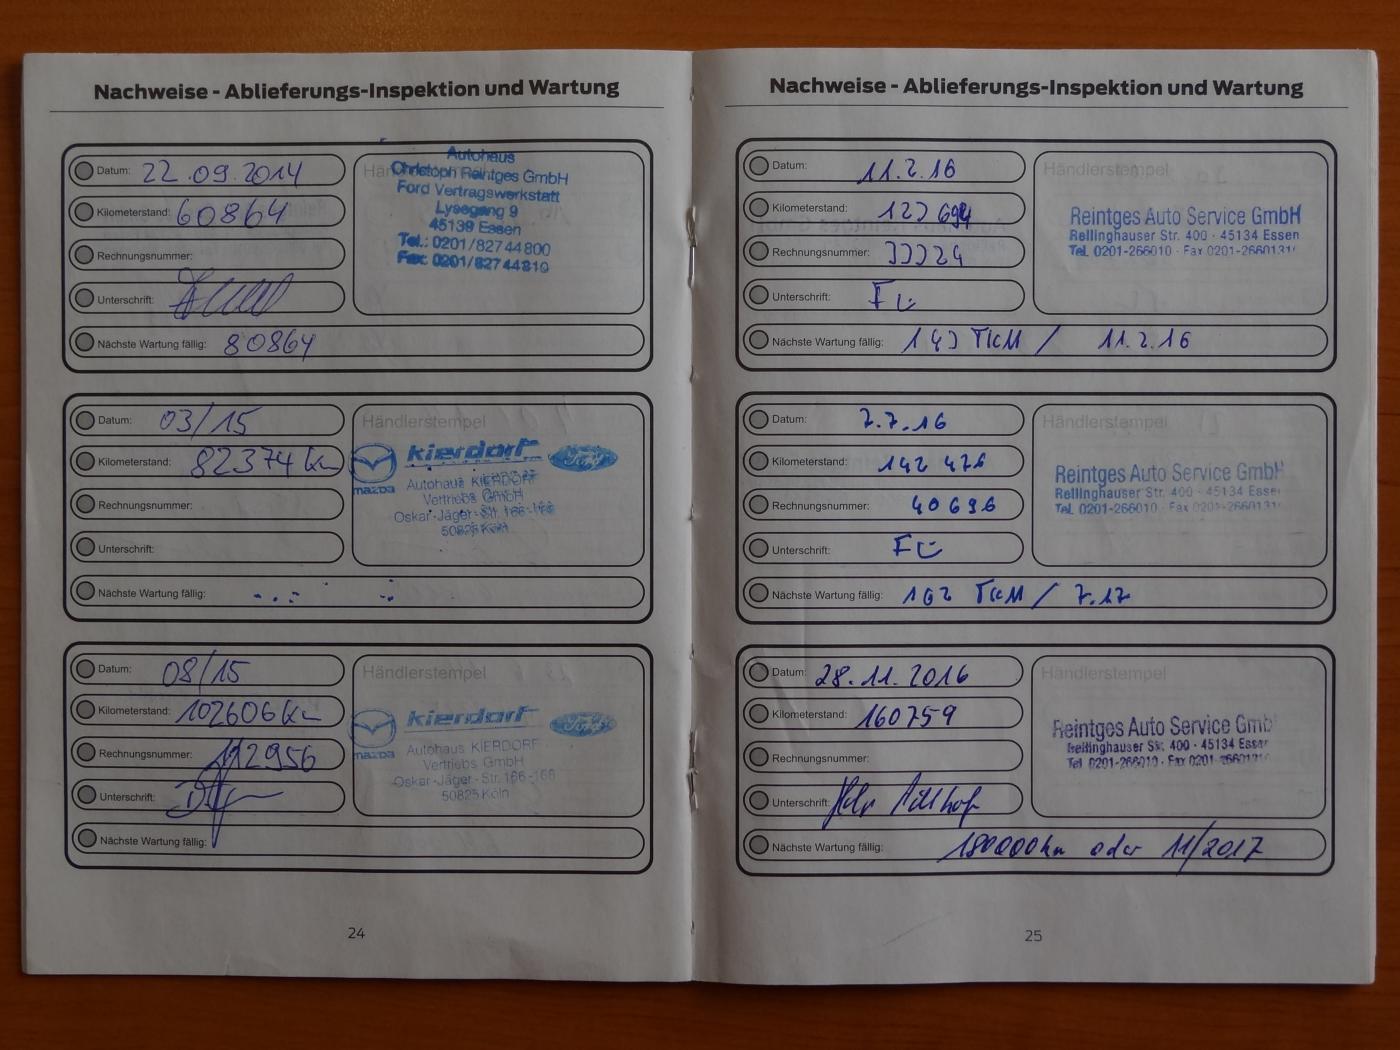 Nachweise - Ablieferungs-Inspektion und Wartung
Datum: 22.09.2014
Kilometerstand: 60864
Rechnungsnummer:
Unterschrift:
Nächste Wartung fällig: 80864
Autohaus
Christoph Reintges GmbH
Ford Vertragswerkstatt
Lysegang 9
45139 Essen
Tel.: 0201/82744800
Fax: 0201/82744810
Datum: 03/15
Kilometerstand: 82374 km
Rechnungsnummer:
Unterschrift:
Nächste Wartung fällig:
Händlerstempel
mazda
kierdorf
Ford
Autohaus KIERDORF
Vertriebs GmbH
Oskar-Jäger-Str. 166-168
50825 Köln
Datum: 08/15
Kilometerstand: 102606 km
Rechnungsnummer: 112956
Unterschrift:
Nächste Wartung fällig:
Händlerstempel
mazda
kierdorf
Ford
Autohaus KIERDORF
Vertriebs GmbH
Oskar-Jäger-Str. 166-168
50825 Köln
24
Nachweise - Ablieferungs-Inspektion und Wartung
Datum: 11.2.16
Kilometerstand: 123694
Rechnungsnummer: 33324
Unterschrift:
Nächste Wartung fällig: 143 TKM / 11.2.16
Händlerstempel
Reintges Auto Service GmbH
Rellinghauser Str. 400 · 45134 Essen
Tel. 0201-266010 · Fax 0201-2660131
Datum: 7.7.16
Kilometerstand: 142 476
Rechnungsnummer: 40696
Unterschrift:
Nächste Wartung fällig: 162 TKM / 7.17
Händlerstempel
Reintges Auto Service GmbH
Rellinghauser Str. 400 · 45134 Essen
Tel. 0201-266010 · Fax 0201-2660131
Datum: 28.11.2016
Kilometerstand: 160759
Rechnungsnummer:
Unterschrift:
Nächste Wartung fällig: 180000 km oder 11/2017
Händlerstempel
Reintges Auto Service Gmb
Rellinghauser Str. 400 · 45134 Essen
Tel. 0201-266010 · Fax 0201-2660131
25